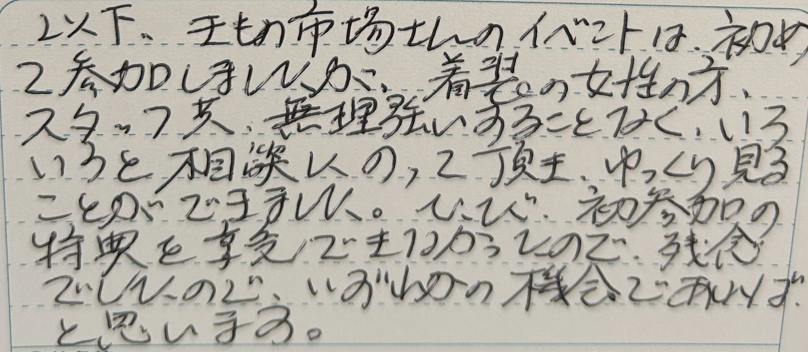 以下、きもの市場さんのイベントは、初め
て参加しましたが、着装の女性の方、
スタッフ共、無理強いすることなく、いろ
いろと相談にのって頂き、ゆっくり見る
ことができました。 初参加の
特典を享受できなかったので、残念
でしたので、いずれかの機会であれば
と思います。